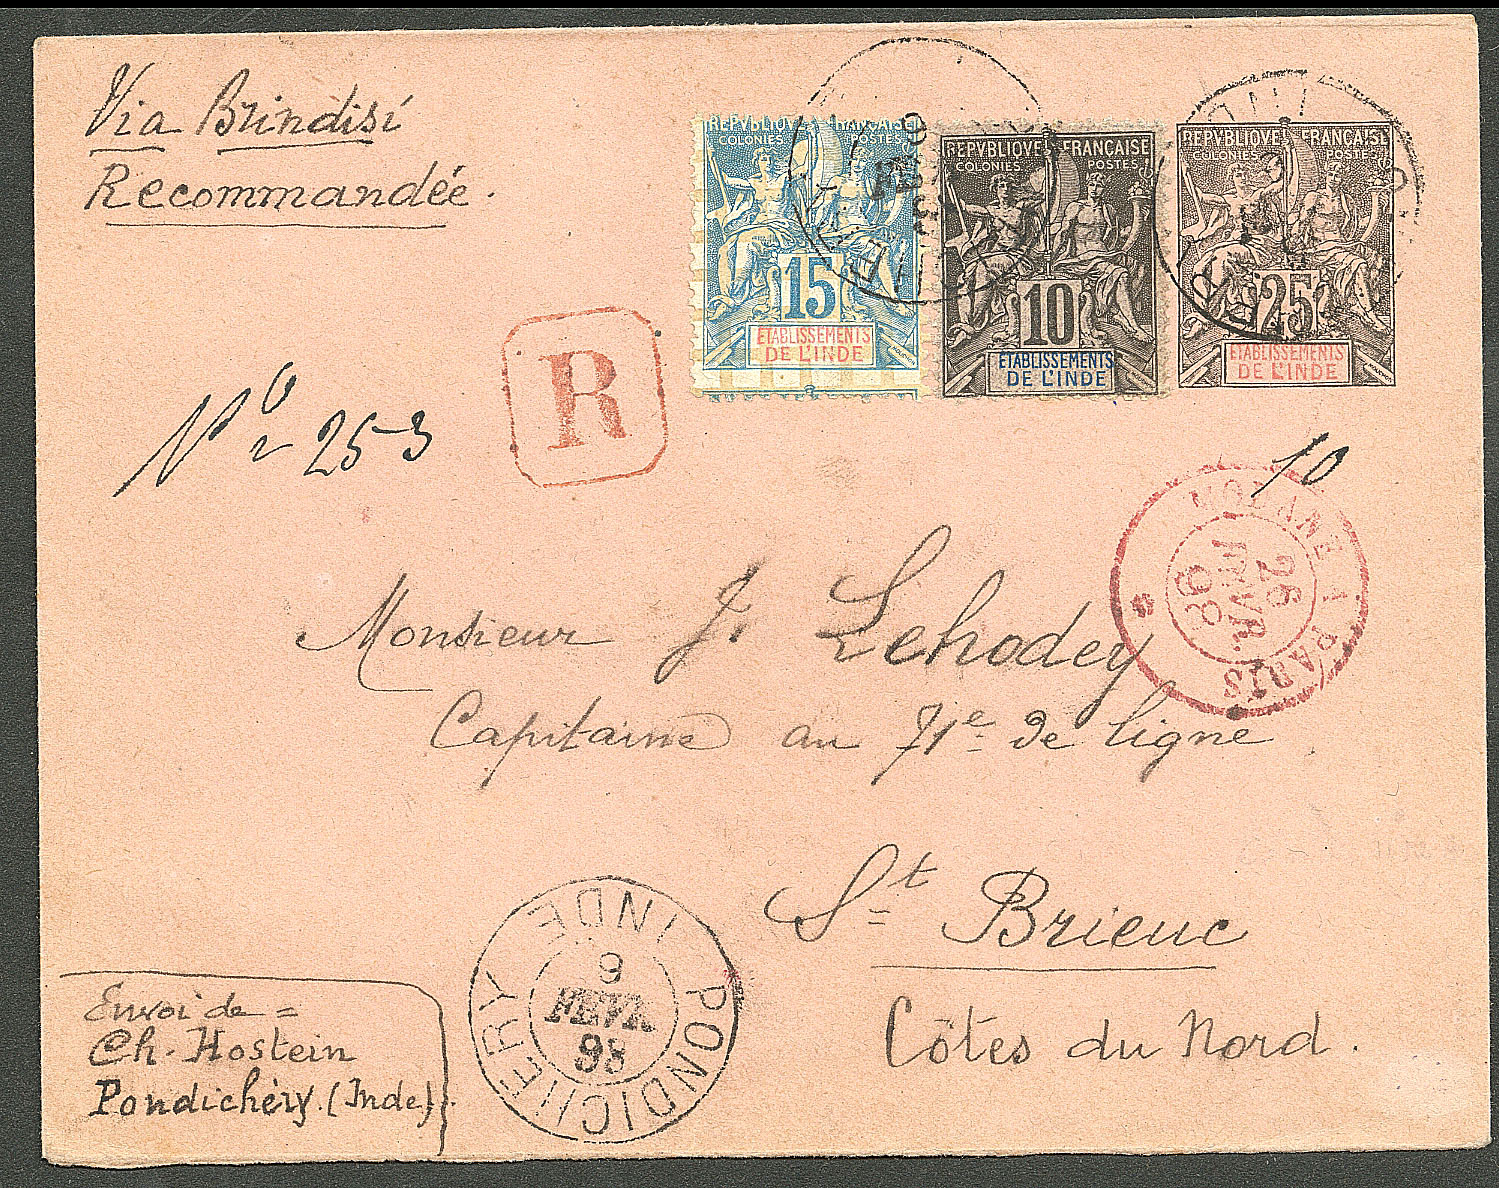 Via Brindisi
Recommandée.
REPVBLIQVE FRANÇAISE
COLONIES POSTES
15
ETABLISSEMENTS
DE L'INDE
REPVBLIQVE FRANÇAISE
COLONIES POSTES
10
ETABLISSEMENTS
DE L'INDE
REPVBLIQVE FRANÇAISE
COLONIES POSTES
25
ETABLISSEMENTS
DE L'INDE
R
No 253
10
MODANE A PARIS
26
FEVR.
98
Monsieur J. Lehodey
Capitaine au 71e de ligne
St Brieuc
Côtes du Nord.
PONDICHERY INDE
9
FEVR
98
Envoi de =
Ch. Hostein
Pondichéry. (Inde).